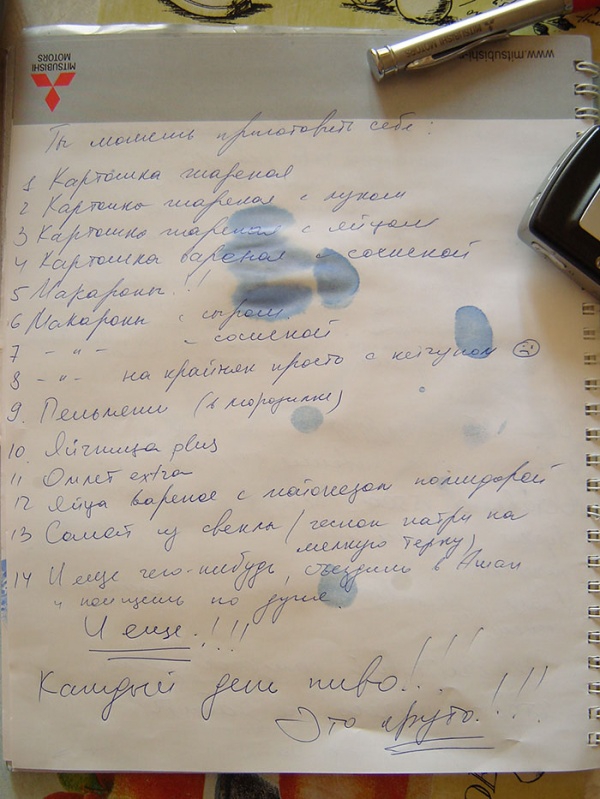 MITSUBISHI
MOTORS
www.mitsubishi-
MITSUBISHI MOTORS
Ты можешь приготовить себе:
1 Картошка жареная
2 Картошка жареная с луком
3 Картошка жареная с яйцом
4 Картошка вареная с сосиской
5 Макароны!!
6 Макароны с сыром
7 - " - с сосиской
8 - " - на крайняк просто с кетчупом ☹
9. Пельмени (в морозилке)
10. Яйчница plus
11 Омлет extra
12 Яйца вареное с майонезом помидорой
13 Салат из свеклы (чеснок натри на
мелкую терку)
14 И еще чего-нибудь, съездишь в Ашан
и поищешь по душе.
И еще!!!!
Каждый день пиво!... !!!
Это круто!!!!